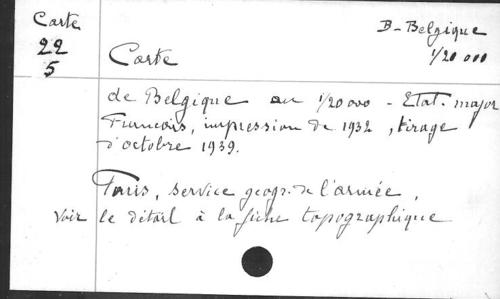 Carte
22
5
B-Belgique
1/20 000
Carte
de Belgique au 1/20 000 - Etat-major
Francais, impression de 1932, tirage
d'octobre 1939.
Paris, service geogr. de l'armée,
Voir le détail à la fiche topographique